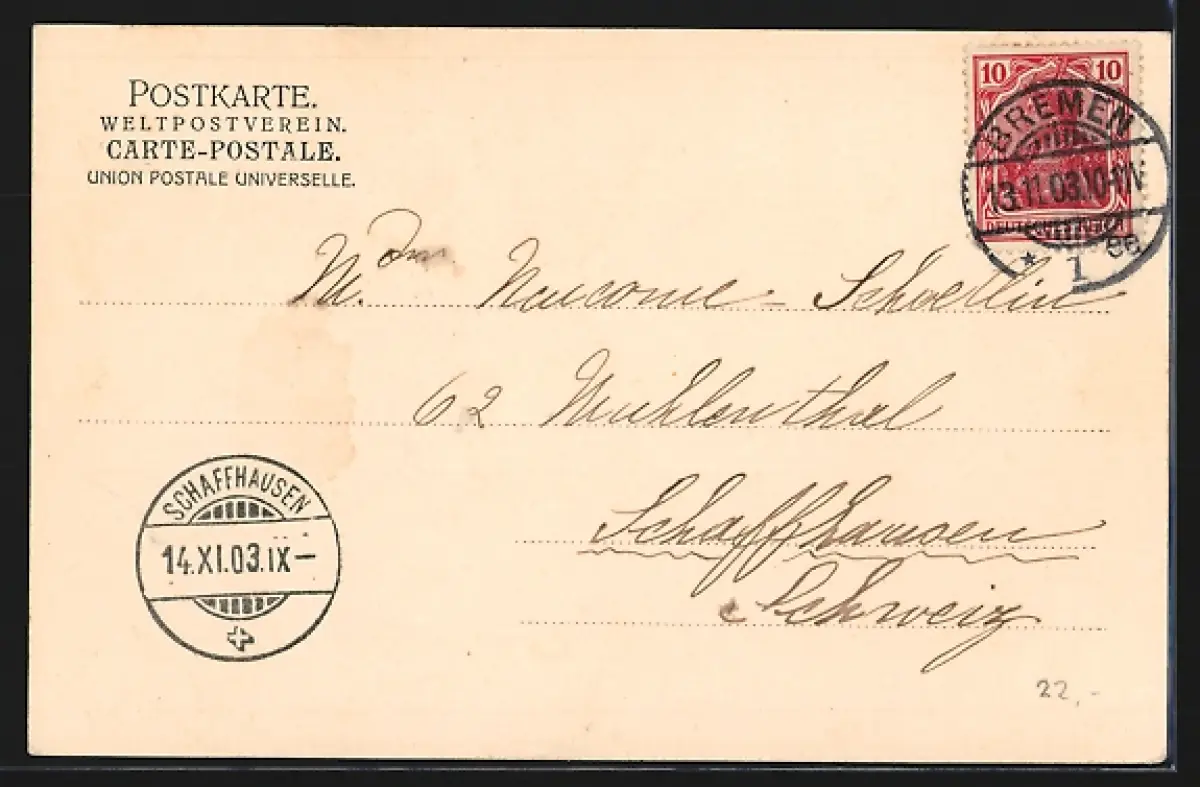 POSTKARTE.
WELTPOSTVEREIN.
CARTE-POSTALE.
UNION POSTALE UNIVERSELLE.
10 10
BREMEN
13.11.03.10-11V.
DEUTSCHES REICH
* 1 ee
Mdm. Newcome-Schoellin
62 Muhlenthal
Schaffhausen
Schweiz
SCHAFFHAUSEN
14.XI.03.IX–
22,-